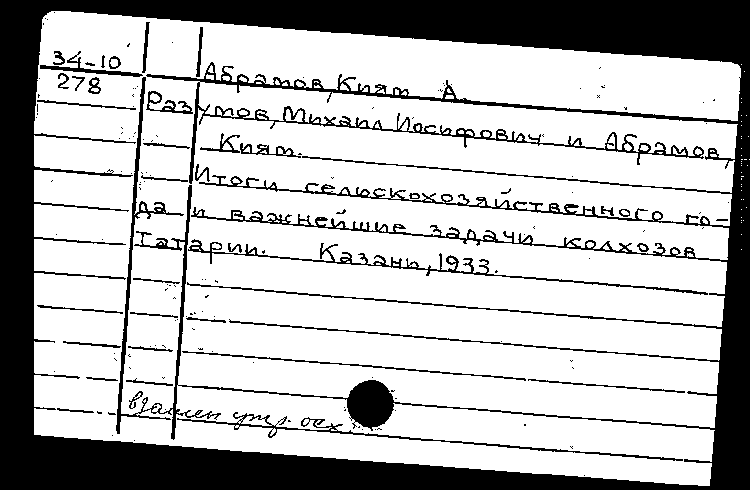 34-10
278
Абрамов, Киям А.
Разумов, Михаил Иосифович и Абрамов,
Киям.
Итоги сельскохозяйственного го-
да и важнейшие задачи колхозов
Татарии. Казань, 1933.
взамен утр.